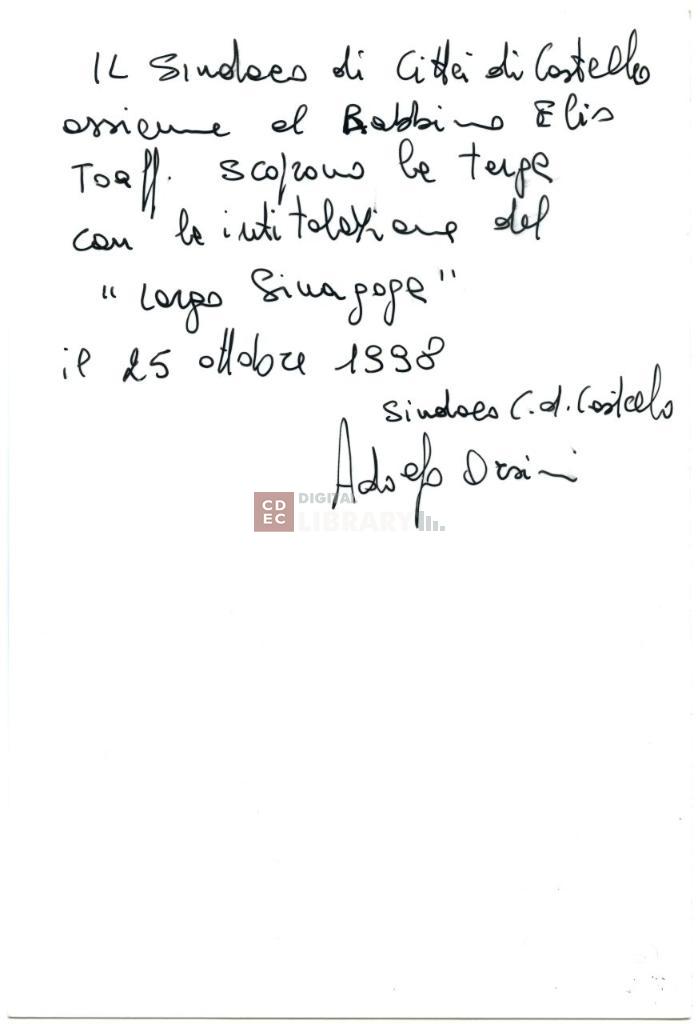 IL Sindaco di Città di Castello
assieme al Rabbino Elio
Toaff. scoprono la targa
con la intitolazione del
"Largo Sinagoga"
il 25 ottobre 1998
Sindaco C. di Castello
Adolfo Orsini
CDEC DIGITAL LIBRARY